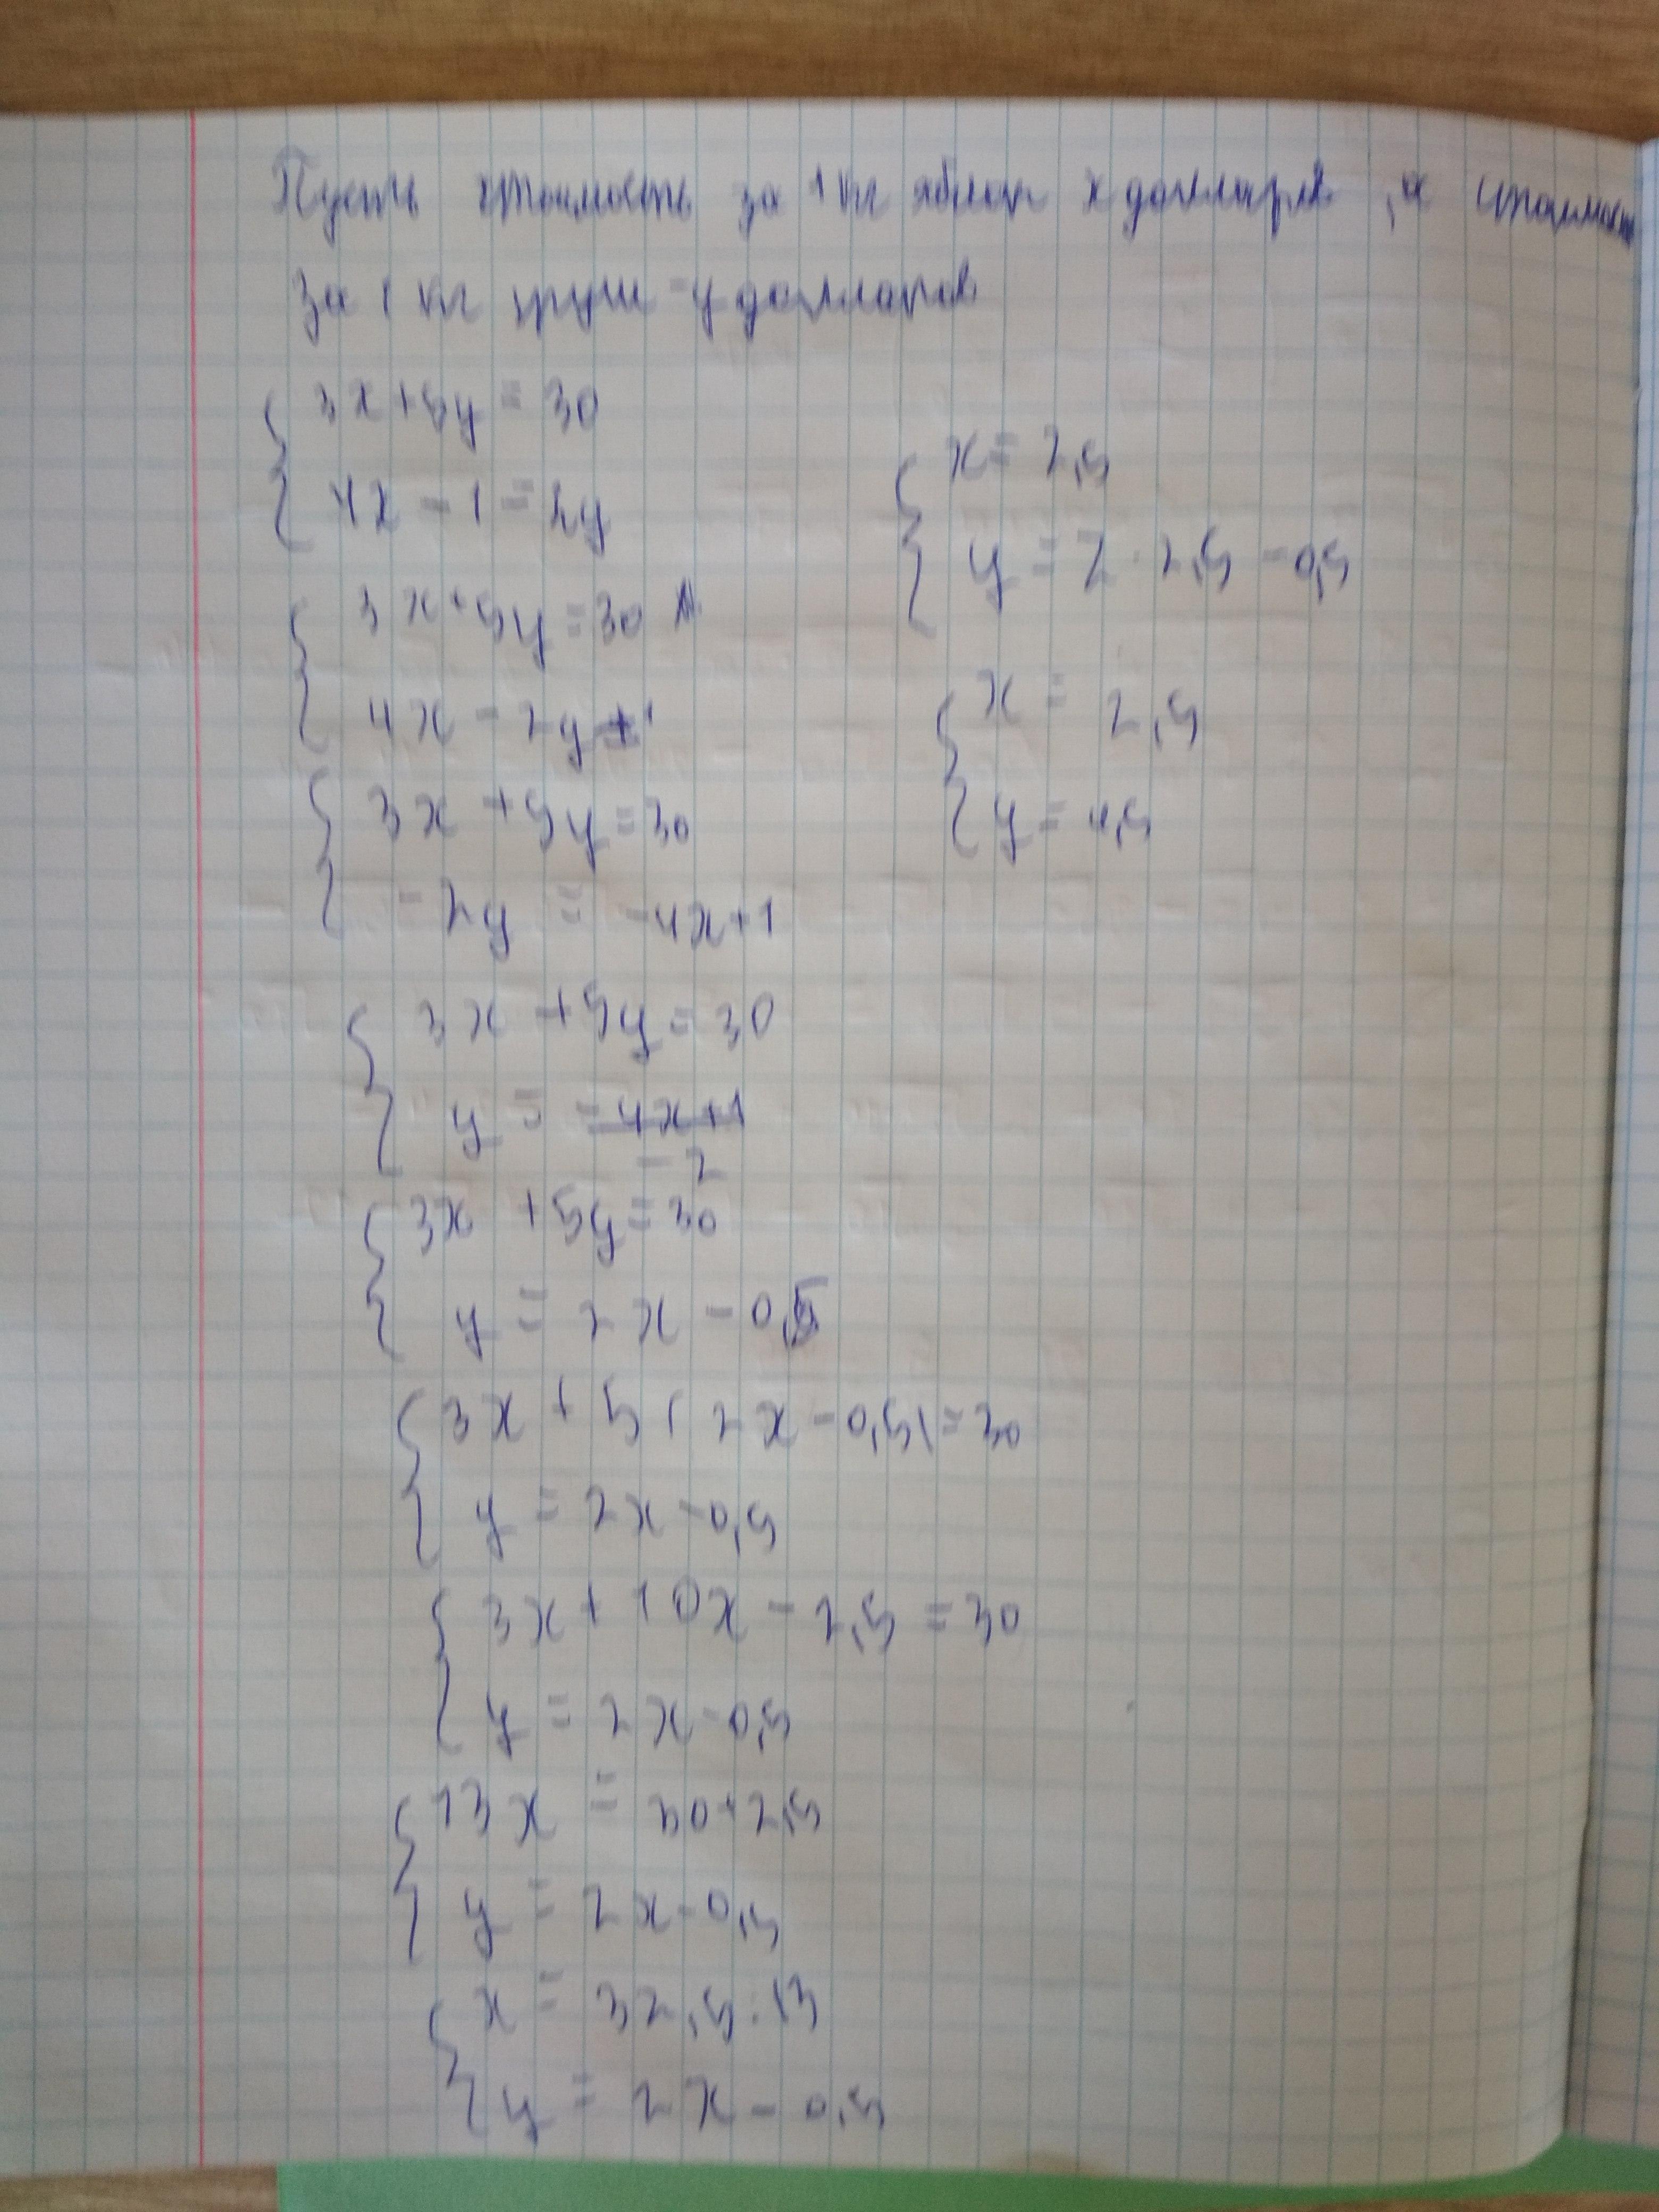 Пусть стоимость за 1 кг яблок х долларов, а стоимость
за 1 кг груш - у долларов
3x+5y=30
4x-1=2y
3x+5y=30
4x-2y=1
3x+5y=30
-2y=-4x+1
3x+5y=30
y=-4x+1
-2
3x+5y=30
y=2x-0,5
3x+5(2x-0,5)=30
y=2x-0,5
3x+10x-2,5=30
y=2x-0,5
13x=30+2,5
y=2x-0,5
x=32,5:13
y=2x-0,5
x=2,5
y=2·2,5-0,5
x=2,5
y=4,5